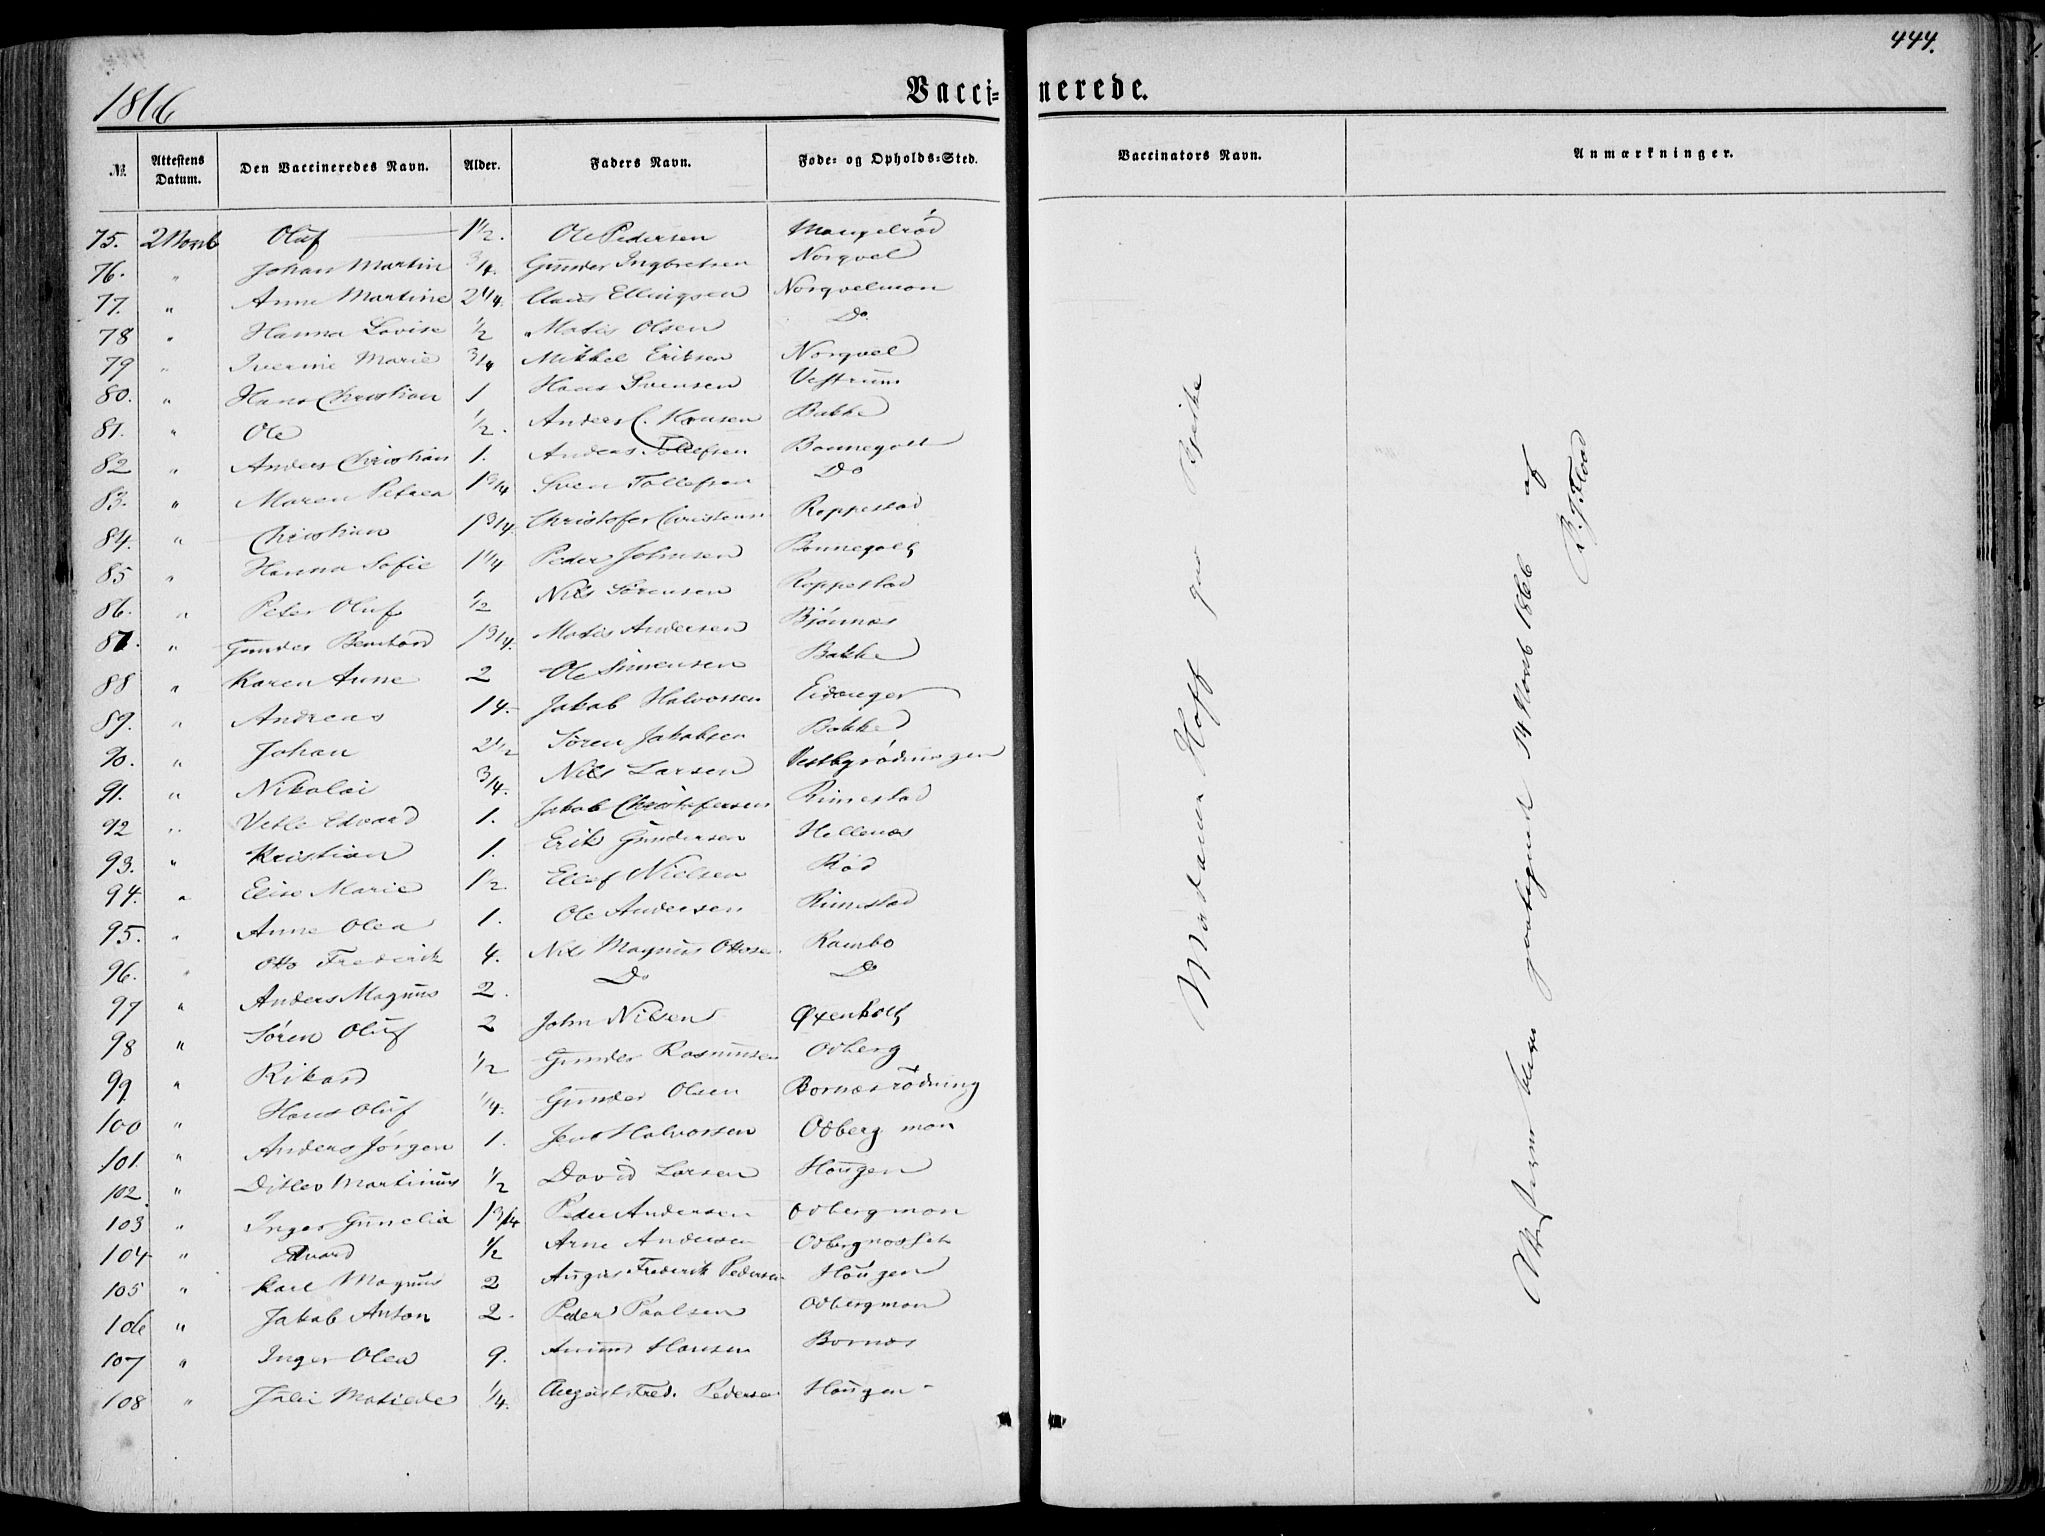 444.
1866
Vacci- nerede.
№ Attestens Datum. Den Vaccineredes Navn. Alder. Faders Navn. Føde- og Opholds-Sted. Vaccinators Navn. Anmærkninger.
75. 2 Novb Oluf 1 1/2. Ole Pedersen
76. " Johan Martin 3/4. Gunder Ingbretsen Norqvel
77. " Anne Martine 2 1/4. Claus Ellingsen Norqvelmon
78 " Hanna Lovise 1/2 Matis Olsen Do
79 " Iverine Marie 3/4 Mikkel Eriksen Norqvel
80. " Hans Christian 1 Hans Svensen Vestrum
81. " Ole 1/2. Anders C. Hansen Bakke
82 " Anders Christian 1. Andreas Tollefsen Bonnegolt
83. " Maren Petrea 1 3/4 Sven Tollefsen Do
84. " Christian 1 3/4. Christofer Christensen Reppestad
85 " Hanna Sofie 1 1/4 Peder Johnsen Bonnegolt
86. " Peter Oluf 1/2 Nils Sørensen Roppestad
87. " Gunder Bernhard 1 3/4. Matis Andersen Bjønnes
88 " Karen Anne 2 Ole Simensen Bakke
89. " Andreas 14. Jakob Halvorsen Eidanger
90. " Johan 2 1/2 Søren Jakobsen Bakke
91. " Nikolai 3/4. Nils Larsen Vestbyrødningen
92 " Vetle Edvard 1. Jakob Christofersen Rimestad
93. " Kristian 1. Erik Gundersen Hollenæs
94. " Elise Marie 1 1/2. Elief Nielsen Rød
95. " Anne Olea 1. Ole Andersen Rimestad
96. " Otto Frederik 4. Nils Magnus Ottosen Rambo
97 " Anders Magnus 2. Do Do
98 " Søren Oluf 2 John Nilsen Øxenholt
99 " Rikard 1/2 Gunder Rasmussen Odberg
100 " Hans Oluf 1/4. Gunder Olsen Bornæsrødning
101. " Anders Jørgen 1. Jens Halvorsen Odberg mon
102. " Ditlev Martinius 1/2 David Larsen Haugen
103 " Inger Gunelia 1 3/4 Peder Andersen Odbergmon
104 " Edvard 1/2 Arne Andersen
105 " Karl Magnus 2 August Frederik Pedersen Haugen
106 " Jakob Anton 2. Peder Paalsen Odbergmon
107 " Inger Olea 9. Amund Hansen Bornæs
108 " Julie Matilde 1/4. August Fred. Pedersen Haugen
Madame Hoff
14 Novb 1866 af